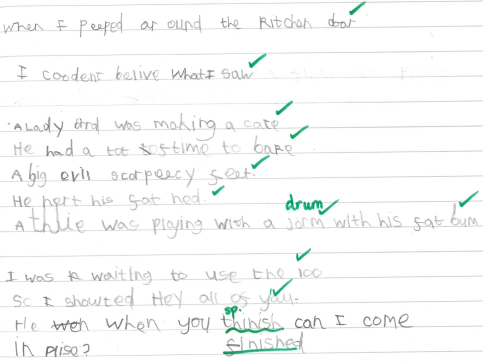 when I peeped ar ound the Kitchen door
I coodent belive what I saw
A Lady Bird was making a cake
He had a lot of time to bake
A big evil scorpeecy feet.
He hert his fat hed.
drum
A thlie was playing with a jorm with his fat bum
I was waiting to use the loo
So I showted Hey all of you.
sp.
He when you thinish can I come
in plise?
finished